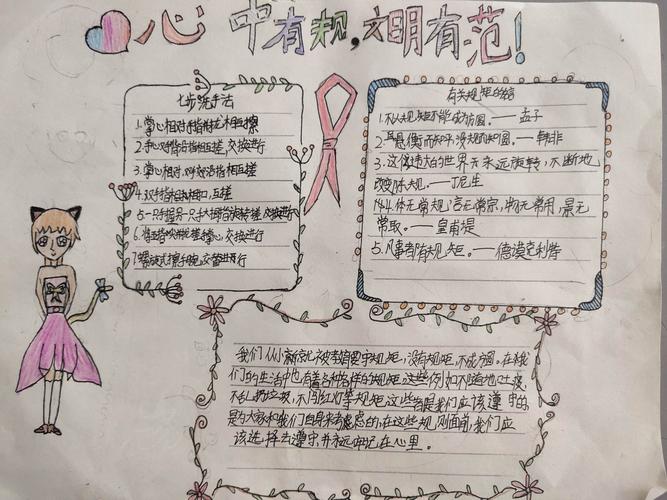 心中有规,文明有范!
七步洗手法
1.掌心相对手指并拢相互擦
2.手心对手背沿指缝相互搓,交换进行
3.掌心相对,双手交叉沿指缝相互搓
4.双手指相扣,互搓
5.一只手握另一只手大拇指旋转搓,交换进行
6.将五指尖并拢搓掌心,交换进行
7.螺旋式擦手腕,交替进行
有关规矩的名言
1.不以规矩不能成方圆。——孟子
2.悬衡而知平,设规而知圆。——韩非
3.这像大的世界永远旋转,不断地
改变陈规。——丁尼生
4.体无常规,言无常宗,物无常用,景无
常取。——皇甫湜
5.凡事都有规矩。——德谟克利特
我们从小就被教育要守规矩,没有规矩,不成方圆。在我
们的生活中也有着各种各样的规矩,这些例如不随地吐痰,
不乱扔垃圾,不闯红灯等规矩,这些都是我们应该遵守的,
是为大家和我们自身来考虑的,在这些规则面前,我们应
该选择去遵守,并永远牢记在心里。